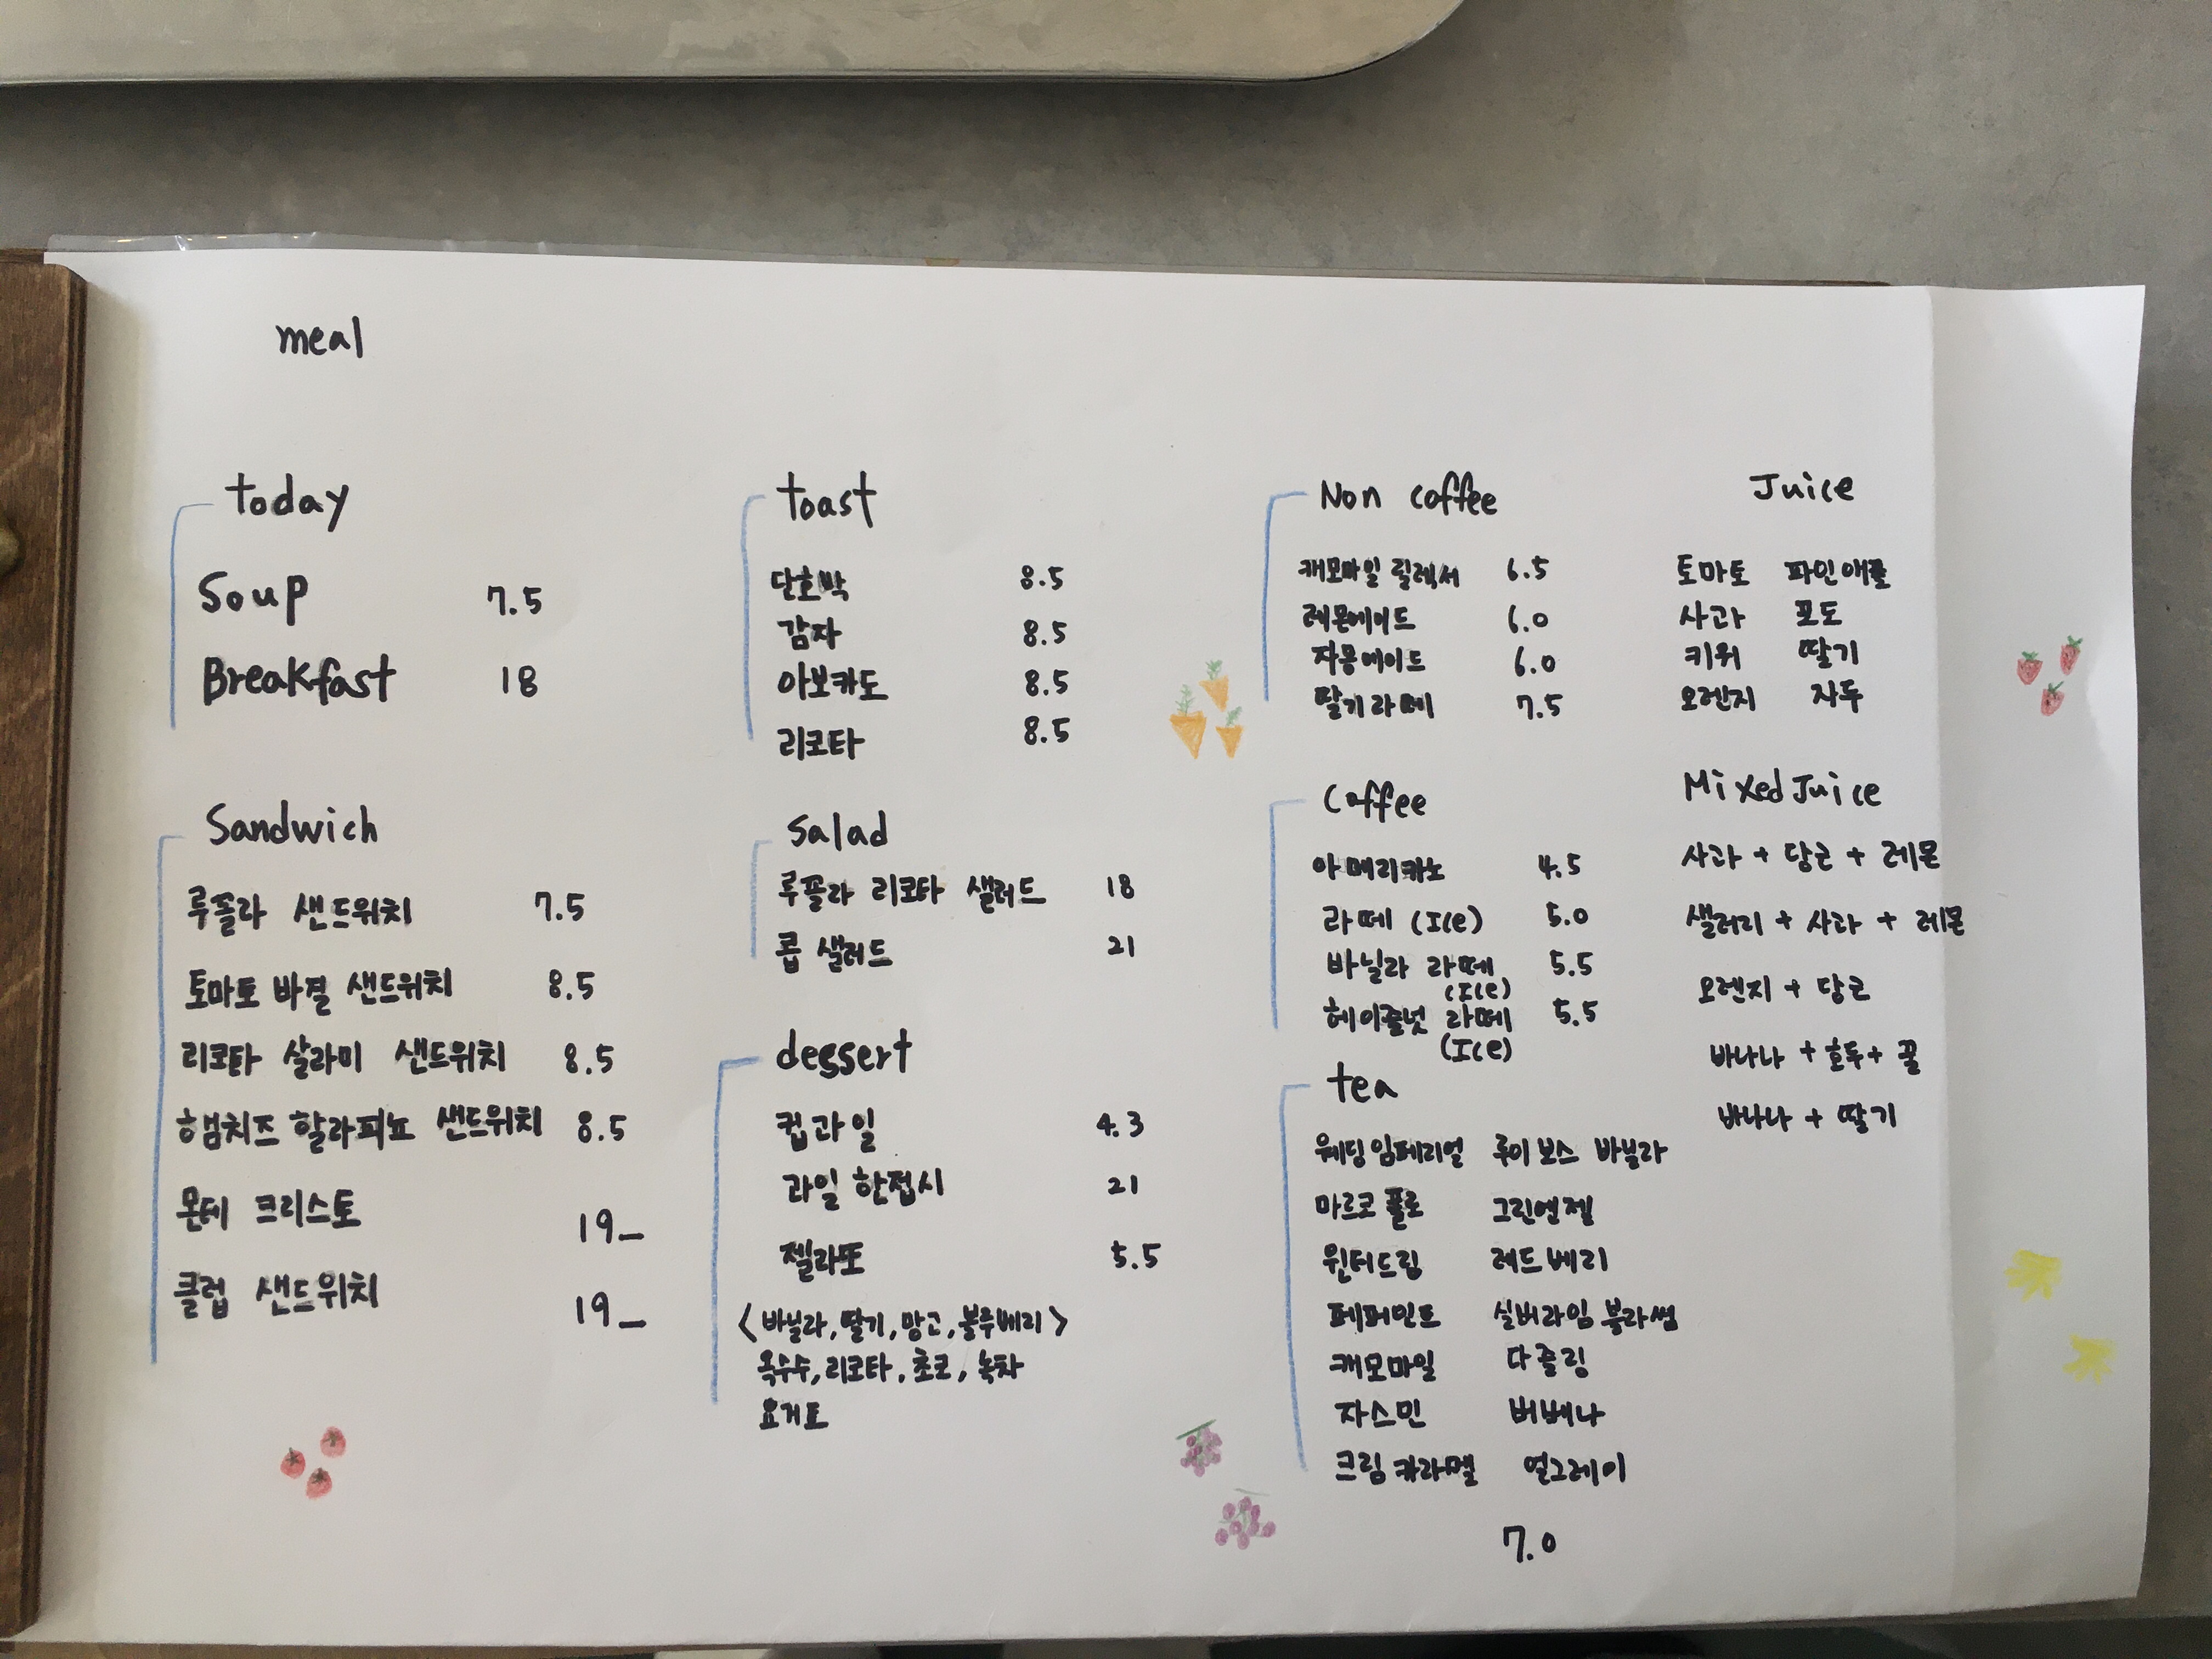 meal
today
Soup 7.5
Breakfast 18
Sandwich
루꼴라 샌드위치 7.5
토마토 바질 샌드위치 8.5
리코타 살라미 샌드위치 8.5
햄치즈 할라피뇨 샌드위치 8.5
몬테 크리스토 19_
클럽 샌드위치 19_
toast
단호박 8.5
감자 8.5
아보카도 8.5
리코타 8.5
salad
루꼴라 리코타 샐러드 18
콥 샐러드 21
dessert
컵과일 4.3
과일 한접시 21
젤라또 5.5
<바닐라, 딸기, 망고, 블루베리>
옥수수, 리코타, 초코, 녹차
요거트
Non coffee
캐모마일 릴렉서 6.5
레몬에이드 6.0
자몽에이드 6.0
딸기라떼 7.5
Coffee
아메리카노 4.5
라떼 (Ice) 5.0
바닐라 라떼 5.5
(Ice)
헤이즐넛 라떼 5.5
(Ice)
tea
웨딩임페리얼 루이보스 바닐라
마르코폴로 그린엔젤
윈터드림 레드베리
페퍼민트 실버라임 블라썸
캐모마일 다즐링
자스민 버베나
크림카라멜 얼그레이
7.0
Juice
토마토 파인애플
사과 포도
키위 딸기
오렌지 자두
Mixed Juice
사과 + 당근 + 레몬
샐러리 + 사과 + 레몬
오렌지 + 당근
바나나 + 호두 + 꿀
바나나 + 딸기